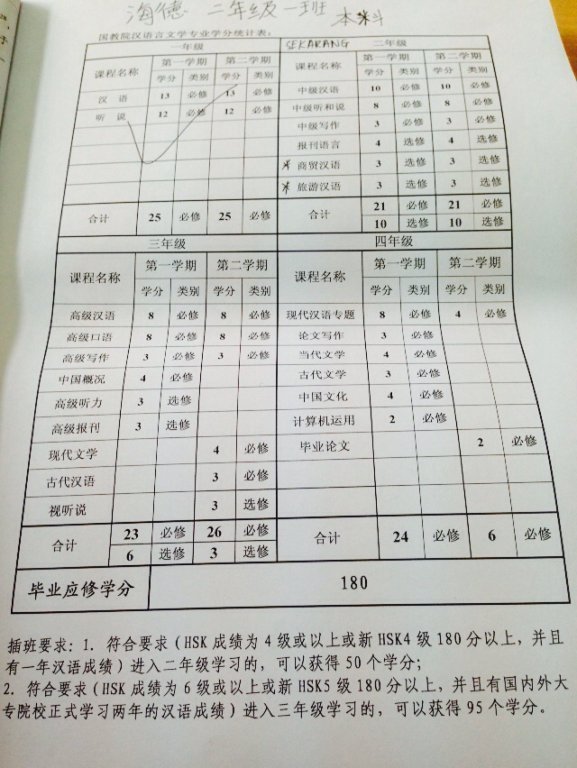 海德 二年级一班 本科
国教院汉语言文学专业学分统计表。
一年级 SEKARANG 二年级
课程名称 第一学期 第二学期 课程名称 第一学期 第二学期
学分 类别 学分 类别 学分 类别 学分 类别
汉语 13 必修 13 必修 中级汉语 10 必修 10 必修
听说 12 必修 12 必修 中级听和说 8 必修 8 必修
中级写作 3 必修 3 必修
报刊语言 4 选修 4 选修
* 商贸汉语 3 选修 3 选修
* 旅游汉语 3 选修 3 选修
合计 25 必修 25 必修 合计 21 必修 21 必修
10 选修 10 选修
三年级 四年级
课程名称 第一学期 第二学期 课程名称 第一学期 第二学期
学分 类别 学分 类别 学分 类别 学分 类别
高级汉语 8 必修 8 必修 现代汉语专题 8 必修 4 必修
高级口语 8 必修 8 必修 论文写作 3 必修
高级写作 3 必修 3 必修 当代文学 4 必修
中国概况 4 必修 古代文学 3 必修
高级听力 3 选修 中国文化 4 必修
高级报刊 3 选修 计算机运用 2 必修
现代文学 4 必修 毕业论文 2 必修
古代汉语 3 必修
视听说 3 选修
合计 23 必修 26 必修 合计 24 必修 6 必修
6 选修 3 选修
毕业应修学分 180
插班要求：1. 符合要求（HSK 成绩为 4 级或以上或新 HSK4 级 180 分以上，并且
有一年汉语成绩）进入二年级学习的，可以获得 50 个学分；
2. 符合要求（HSK 成绩为 6 级或以上或新 HSK5 级 180 分以上，并且有国内外大
专院校正式学习两年的汉语成绩）进入三年级学习的，可以获得 95 个学分。